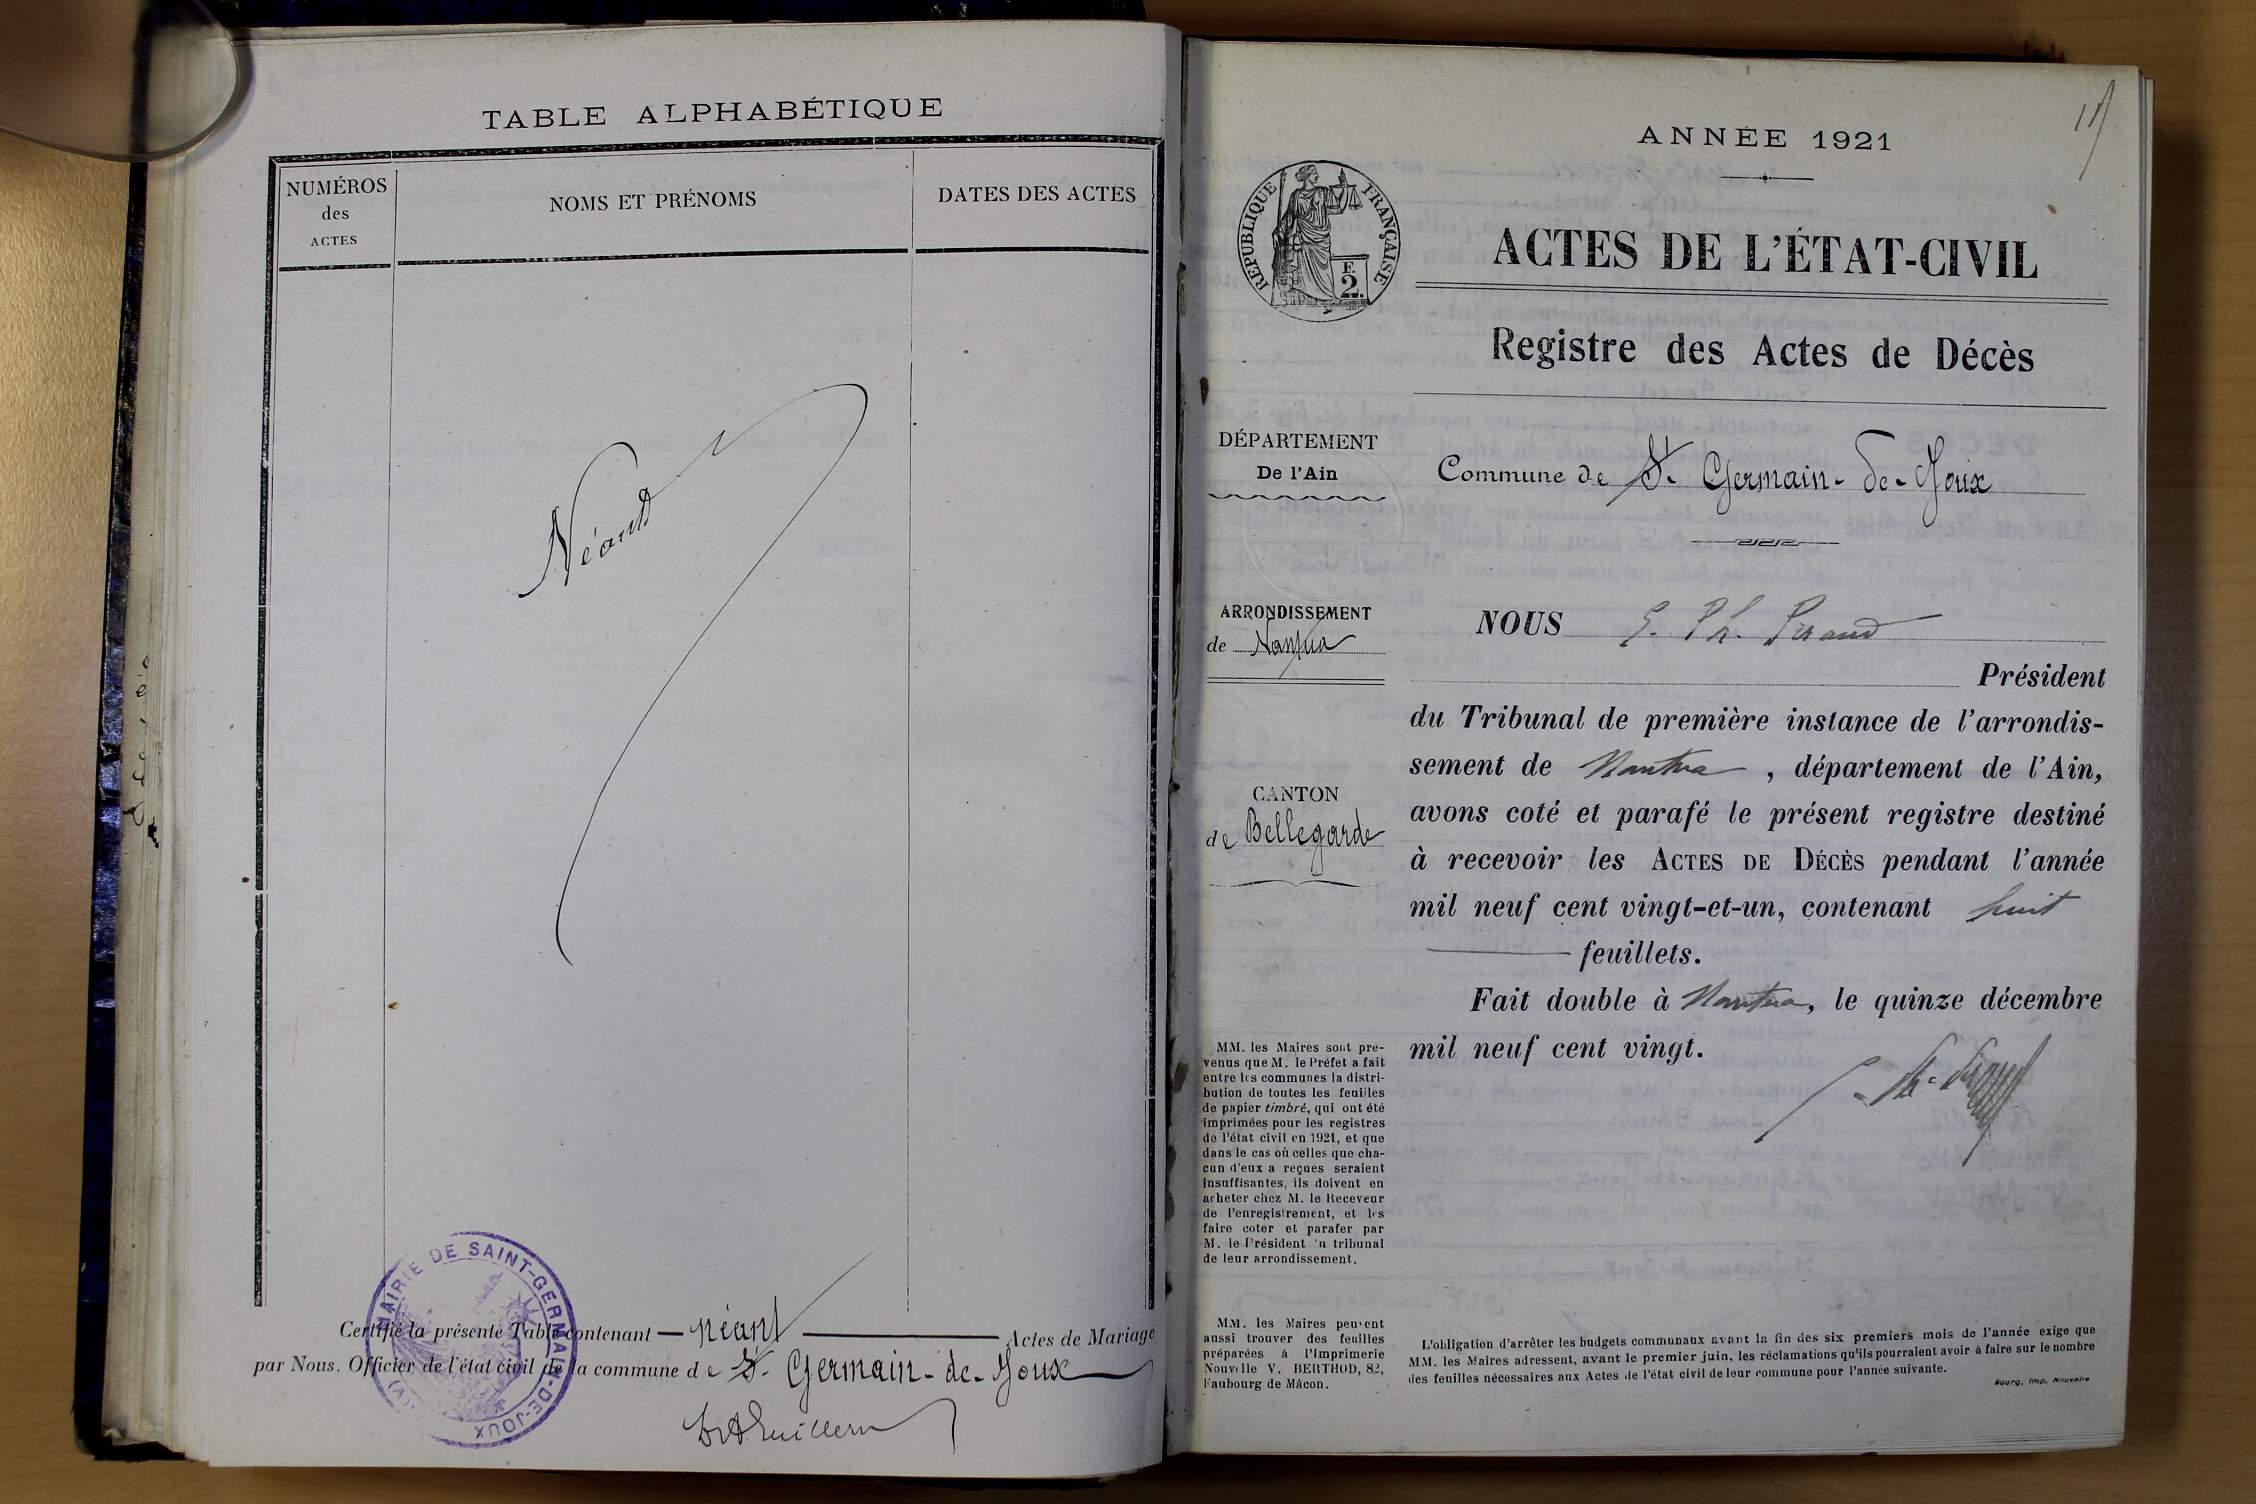 TABLE ALPHABÉTIQUE
NUMÉROS
des
ACTES
NOMS ET PRÉNOMS
DATES DES ACTES
Néant
Certifié la présente Table contenant — néant — Actes de Mariage
par Nous, Officier de l'état civil de la commune de St Germain-de-Joux
MAIRIE DE SAINT-GERMAIN-DE-JOUX
ANNÉE 1921
RÉPUBLIQUE FRANÇAISE
F.
2.
ACTES DE L'ÉTAT-CIVIL
Registre des Actes de Décès
DÉPARTEMENT
De l'Ain
Commune de St Germain-de-Joux
ARRONDISSEMENT
de Nantua
CANTON
de Bellegarde
NOUS
Président
du Tribunal de première instance de l'arrondis-
sement de Nantua, département de l'Ain,
avons coté et parafé le présent registre destiné
à recevoir les ACTES DE DÉCÈS pendant l'année
mil neuf cent vingt-et-un, contenant huit
feuillets.
Fait double à Nantua, le quinze décembre
mil neuf cent vingt.
MM. les Maires sont pré-
venus que M. le Préfet a fait
entre les communes la distri-
bution de toutes les feuilles
de papier timbré, qui ont été
imprimées pour les registres
de l'état civil en 1921, et que
dans le cas où celles que cha-
cun d'eux a reçues seraient
insuffisantes, ils doivent en
acheter chez M. le Receveur
de l'enregistrement, et les
faire coter et parafer par
M. le Président du tribunal
de leur arrondissement.
MM. les Maires peuvent
aussi trouver des feuilles
préparées à l'Imprimerie
Nouvelle V. BERTHOD, 82,
Faubourg de Mâcon.
L'obligation d'arrêter les budgets communaux avant la fin des six premiers mois de l'année exige que
MM. les Maires adressent, avant le premier juin, les réclamations qu'ils pourraient avoir à faire sur le nombre
des feuilles nécessaires aux Actes de l'état civil de leur commune pour l'année suivante.
Bourg, Imp. Nouvelle